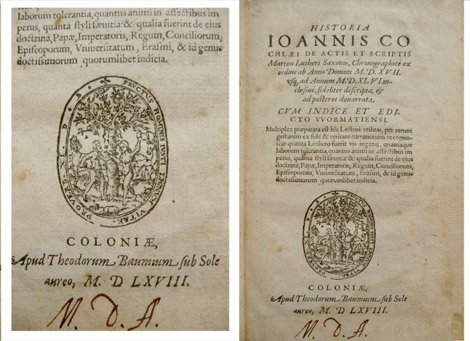 laborum tolerantia, quantus animi in affectibus im
petus, quanta styli &qualia fuerint de eius
doctrina, Papæ, Imperatoris, Regum, Conciliorum,
Episcoporum, Vniuersitatum, Erasmi, & id genus
doctissimorum quorumlibet iudicia.
COLONIÆ,
Apud Theodorum Baumium sub Sole
aureo, M. D LXVIII.
M. D. A.
HISTORIA
IOANNIS CO
CHLÆI DE ACTIS ET SCRIPTIS
Martini Lutheri Saxonis, Chronographicè ex
ordine ab Anno Domini M.D.XVII.
usq, ad Annum M.D.XLVI. in-
clusiuè, fideliter descripta, &
ad posteros denarrata.
CVM INDICE ET EDI
CTO VVORMATIENSI.
Multiplex præparata est hîc Lectori vtilitas, per rerum
gestarum ex fide & veritate narrationem vt cognos-
cat quanta Lutheri fuerit vis ingenij, quantaque
laborum tolerantia, quantus animi in affectibus im
petus, quanta styli & qualia fuerint de eius
doctrina, Papæ, Imperatoris, Regum, Conciliorum,
Episcoporum, Vniuersitatum, Erasmi, & id genus
doctissimorum quorumlibet iudicia.
COLONIÆ,
Apud Theodorum Baumium sub Sole
aureo, M. D LXVIII.
M. D. A.